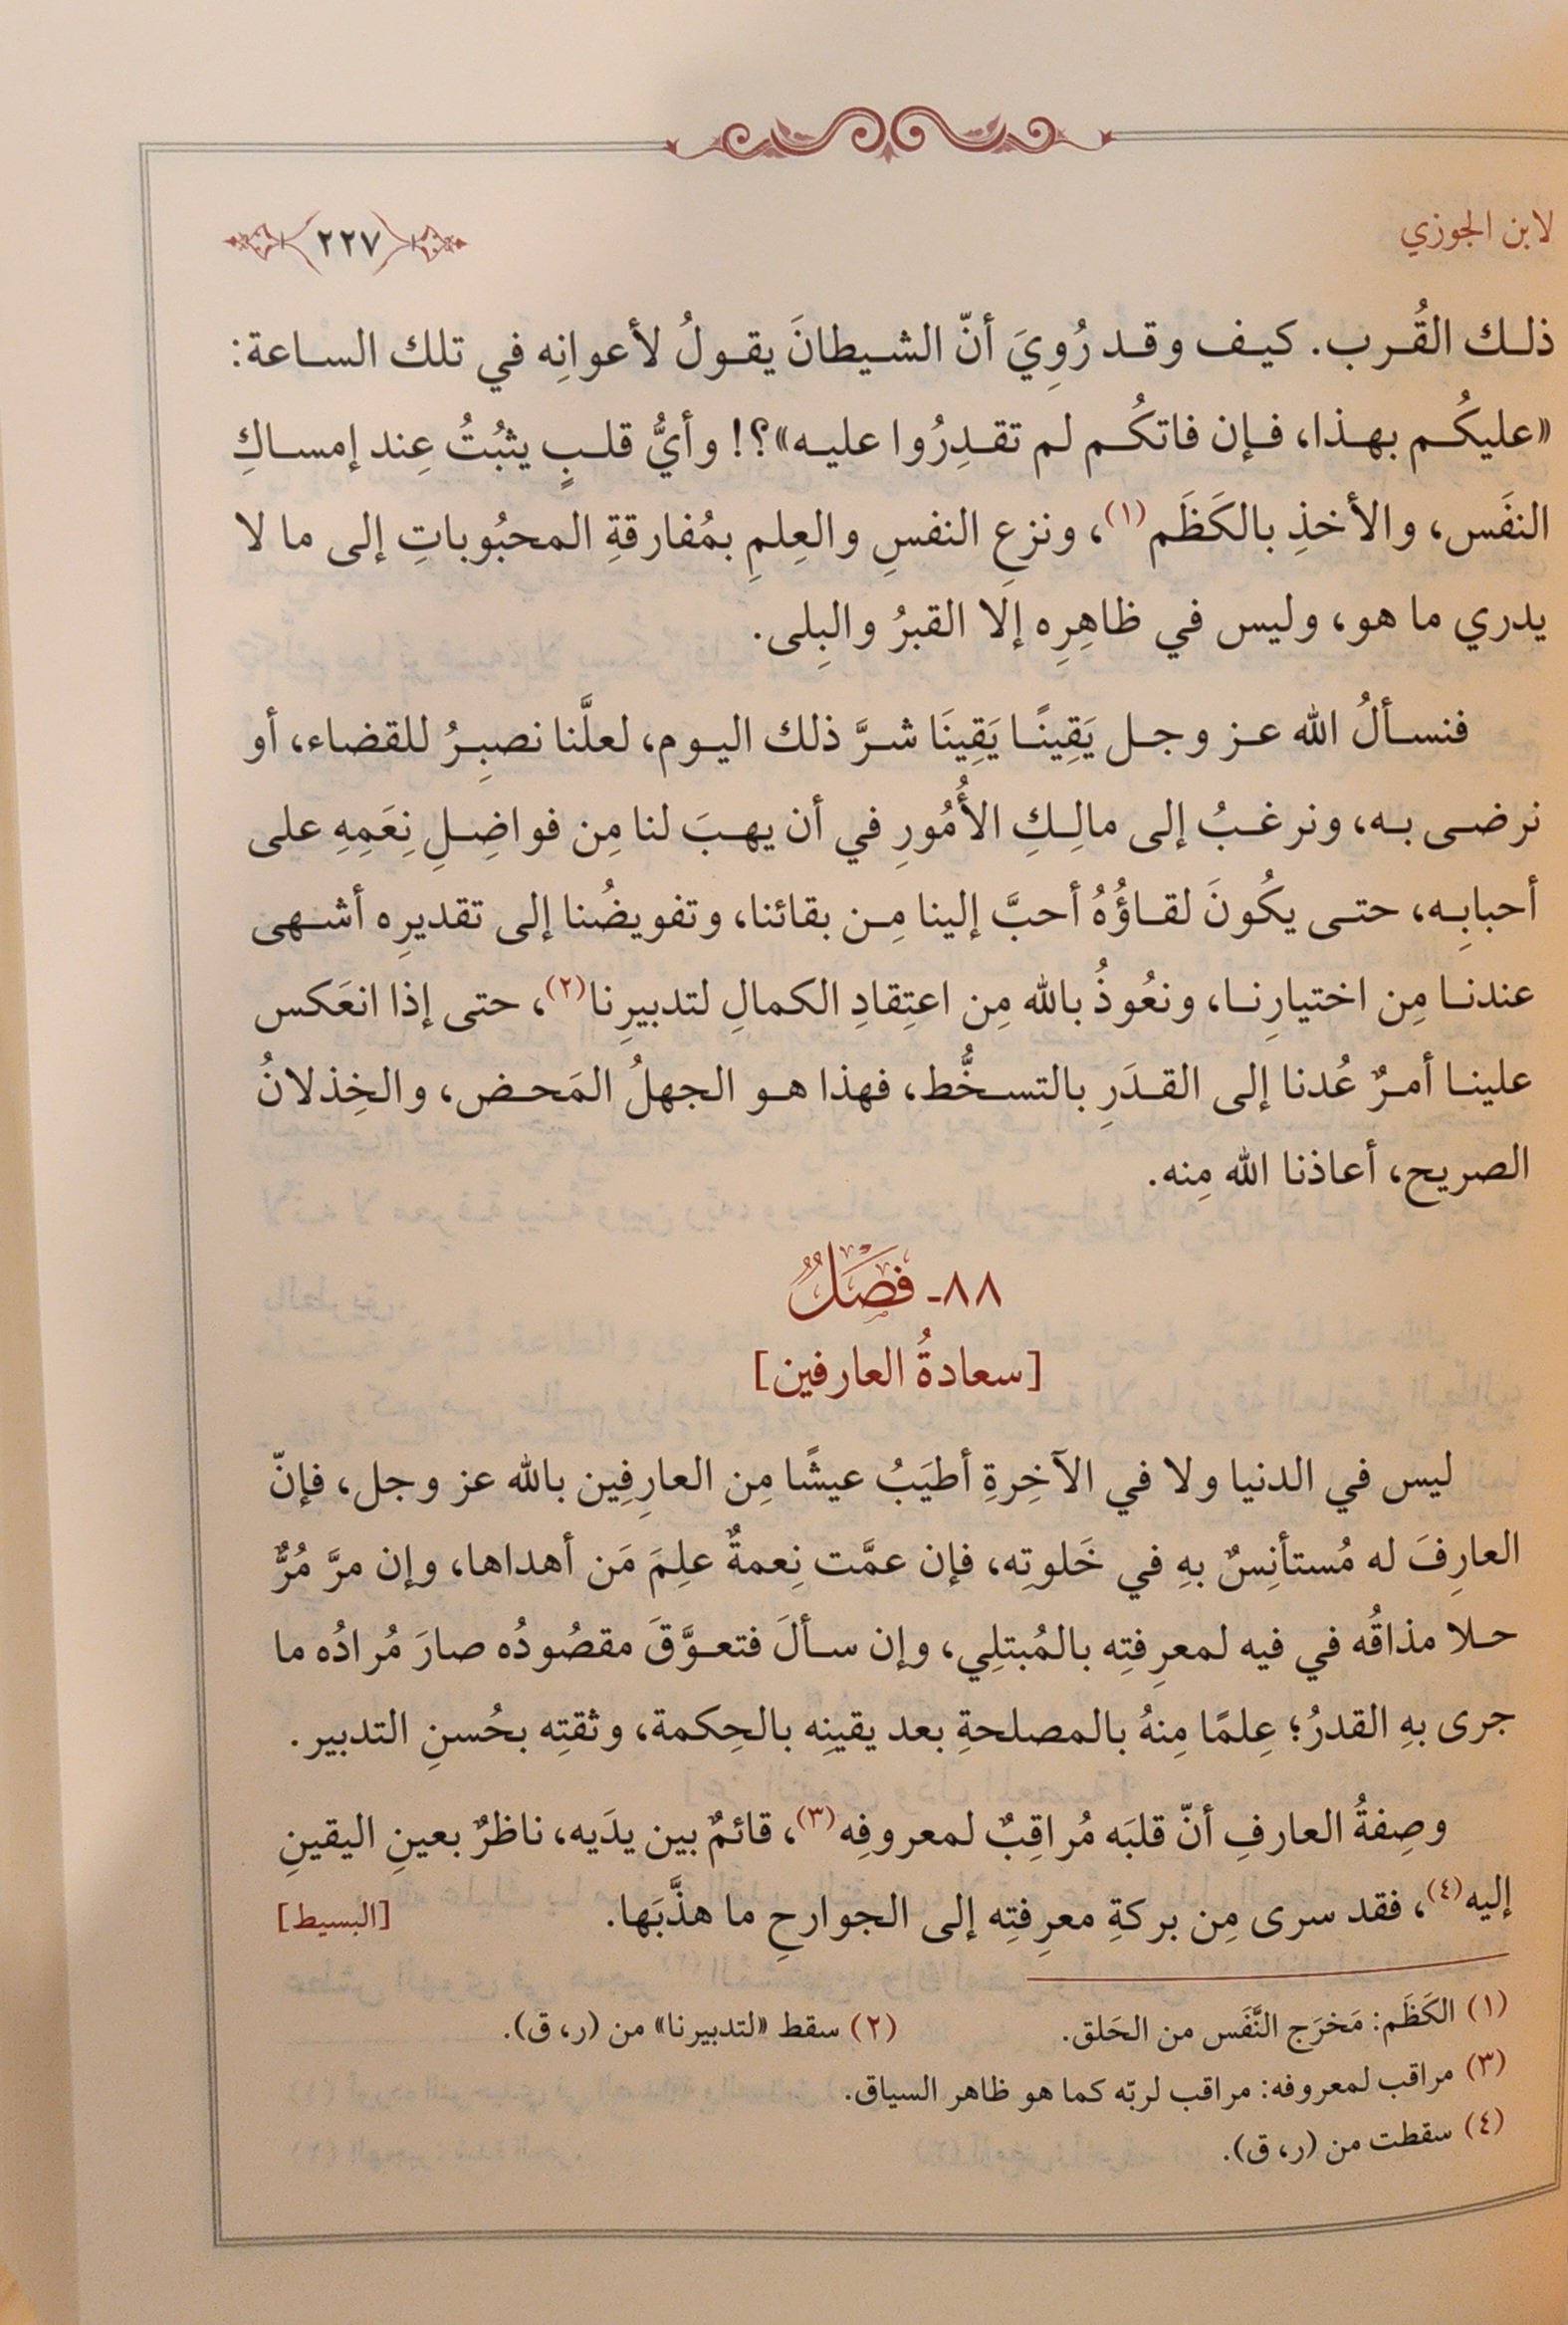 لابن الجوزي
٢٢٧
ذلك القُرب. كيف وقد رُوِيَ أنّ الشيطانَ يقولُ لأعوانِه في تلك الساعة:
«عليكُم بهذا، فإن فاتكُم لم تقدِرُوا عليه»؟! وأيُّ قلبٍ يثبُتُ عِند إمساكِ
النفَس، والأخذِ بالكَظَم(١)، ونزعِ النفسِ والعِلمِ بمُفارقةِ المحبُوباتِ إلى ما لا
يدري ما هو، وليس في ظاهِرِه إلا القبرُ والبِلى.
فنسألُ الله عز وجل يَقِينًا يَقِينَا شرَّ ذلك اليوم، لعلَّنا نصبِرُ للقضاء، أو
نرضى به، ونرغبُ إلى مالِكِ الأُمُورِ في أن يهبَ لنا مِن فواضِلِ نِعَمِهِ على
أحبابِه، حتى يكُونَ لقاؤُهُ أحبَّ إلينا مِن بقائنا، وتفويضُنا إلى تقديرِه أشهى
عندنا مِن اختيارِنا، ونعُوذُ بالله مِن اعتِقادِ الكمالِ لتدبيرِنا(٢)، حتى إذا انعَكس
علينا أمرٌ عُدنا إلى القدَرِ بالتسخُّط، فهذا هو الجهلُ المَحض، والخِذلانُ
الصريح، أعاذنا الله مِنه.
٨٨- فَصْلٌ
[سعادةُ العارفين]
ليس في الدنيا ولا في الآخِرةِ أطيَبُ عيشًا مِن العارِفِين بالله عز وجل، فإنّ
العارِفَ له مُستأنِسٌ بهِ في خَلوتِه، فإن عمَّت نِعمةٌ علِمَ مَن أهداها، وإن مرَّ مُرٌّ
حلا مذاقُه في فيه لمعرِفتِه بالمُبتلِي، وإن سألَ فتعوَّقَ مقصُودُه صارَ مُرادُه ما
جرى بهِ القدرُ؛ عِلمًا مِنهُ بالمصلحةِ بعد يقينِه بالحِكمة، وثقتِه بحُسنِ التدبير.
وصِفةُ العارفِ أنّ قلبَه مُراقِبٌ لمعروفِه(٣)، قائمٌ بين يدَيه، ناظرٌ بعينِ اليقينِ
إليه(٤)، فقد سرى مِن بركةِ معرِفتِه إلى الجوارحِ ما هذَّبَها. [البسيط]
(١) الكَظَم: مَخرَج النَّفَس من الحَلق. (٢) سقط «لتدبيرنا» من (ر، ق).
(٣) مراقب لمعروفه: مراقب لربّه كما هو ظاهر السياق.
(٤) سقطت من (ر، ق).